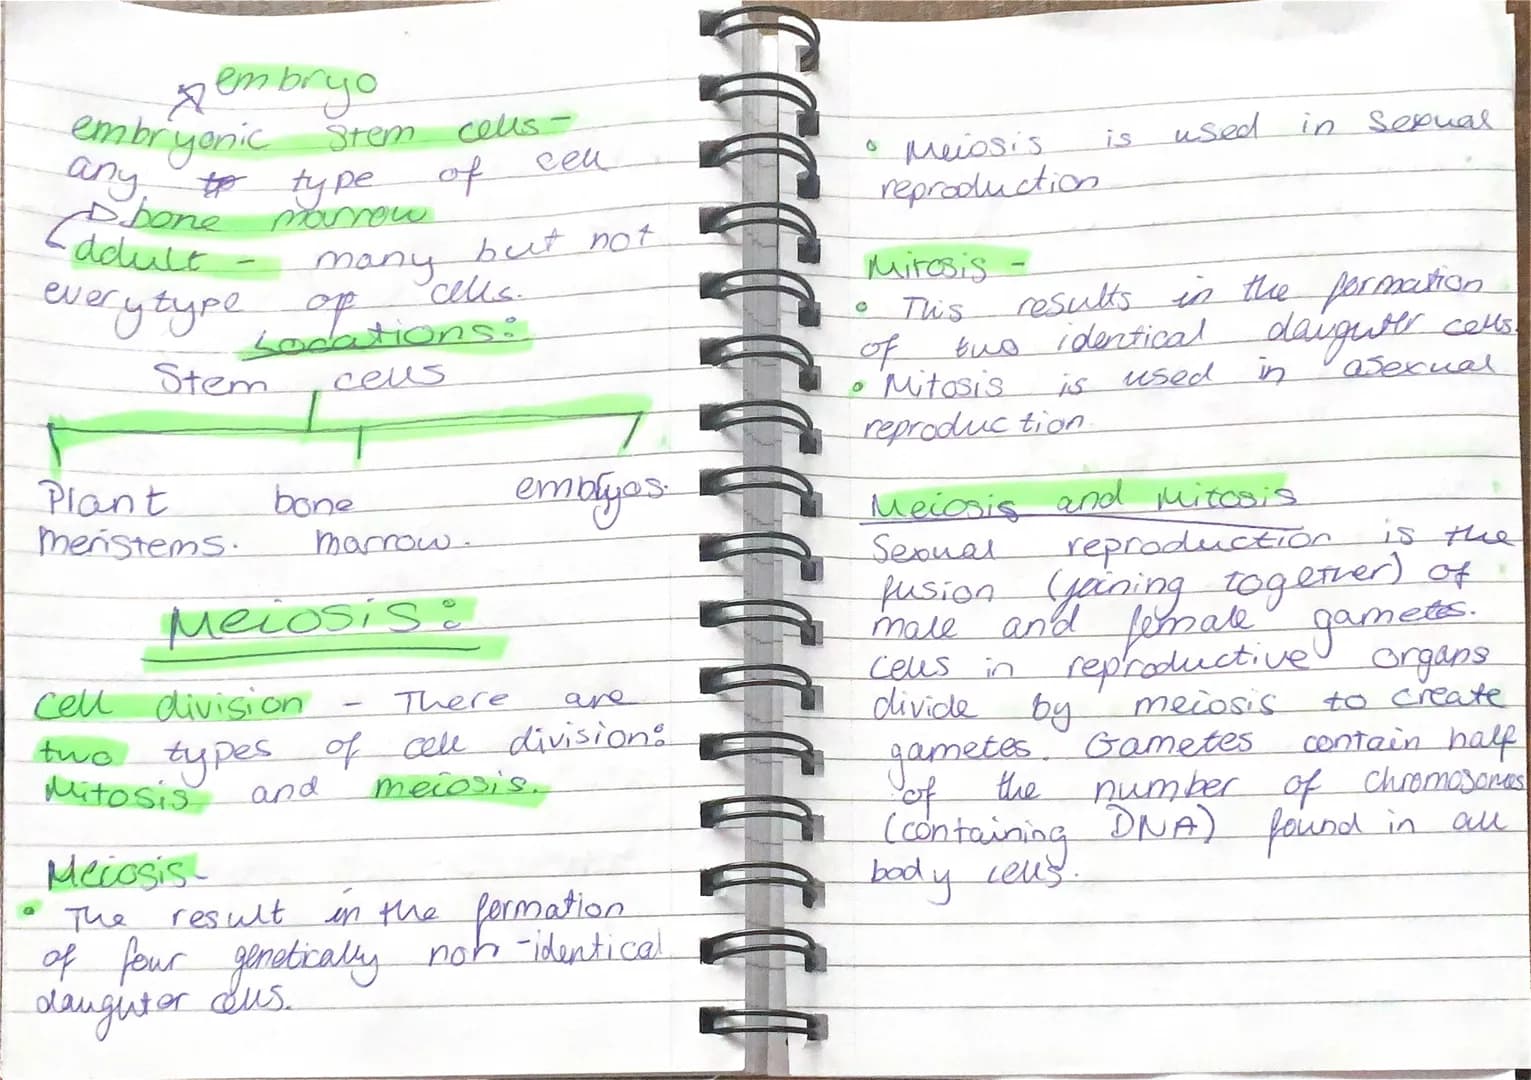 embryo
embryonic stem cells-
any type of cell
bone marrow
adult - many but not
everytype of cells.
Locations:
Stem cells
Plant bone embryos.
meristems. marrow.
Meiosis:
cell division - There are
two types of cell division:
Mitosis and meiosis.
Meiosis-
• The result in the formation
of four genetically non-identical
daughter cells.
• Meiosis is used in sexual
reproduction
Mitosis -
• This results in the formation
of two identical daughter cells.
• Mitosis is used in asexual
reproduction.
Meiosis and Mitosis
Sexual reproduction is the
fusion (joining together) of
male and female gametes.
Cells in reproductive organs
divide by meiosis to create
gametes. Gametes contain half
of the number of chromosomes
(containing DNA) found in all
body cells.